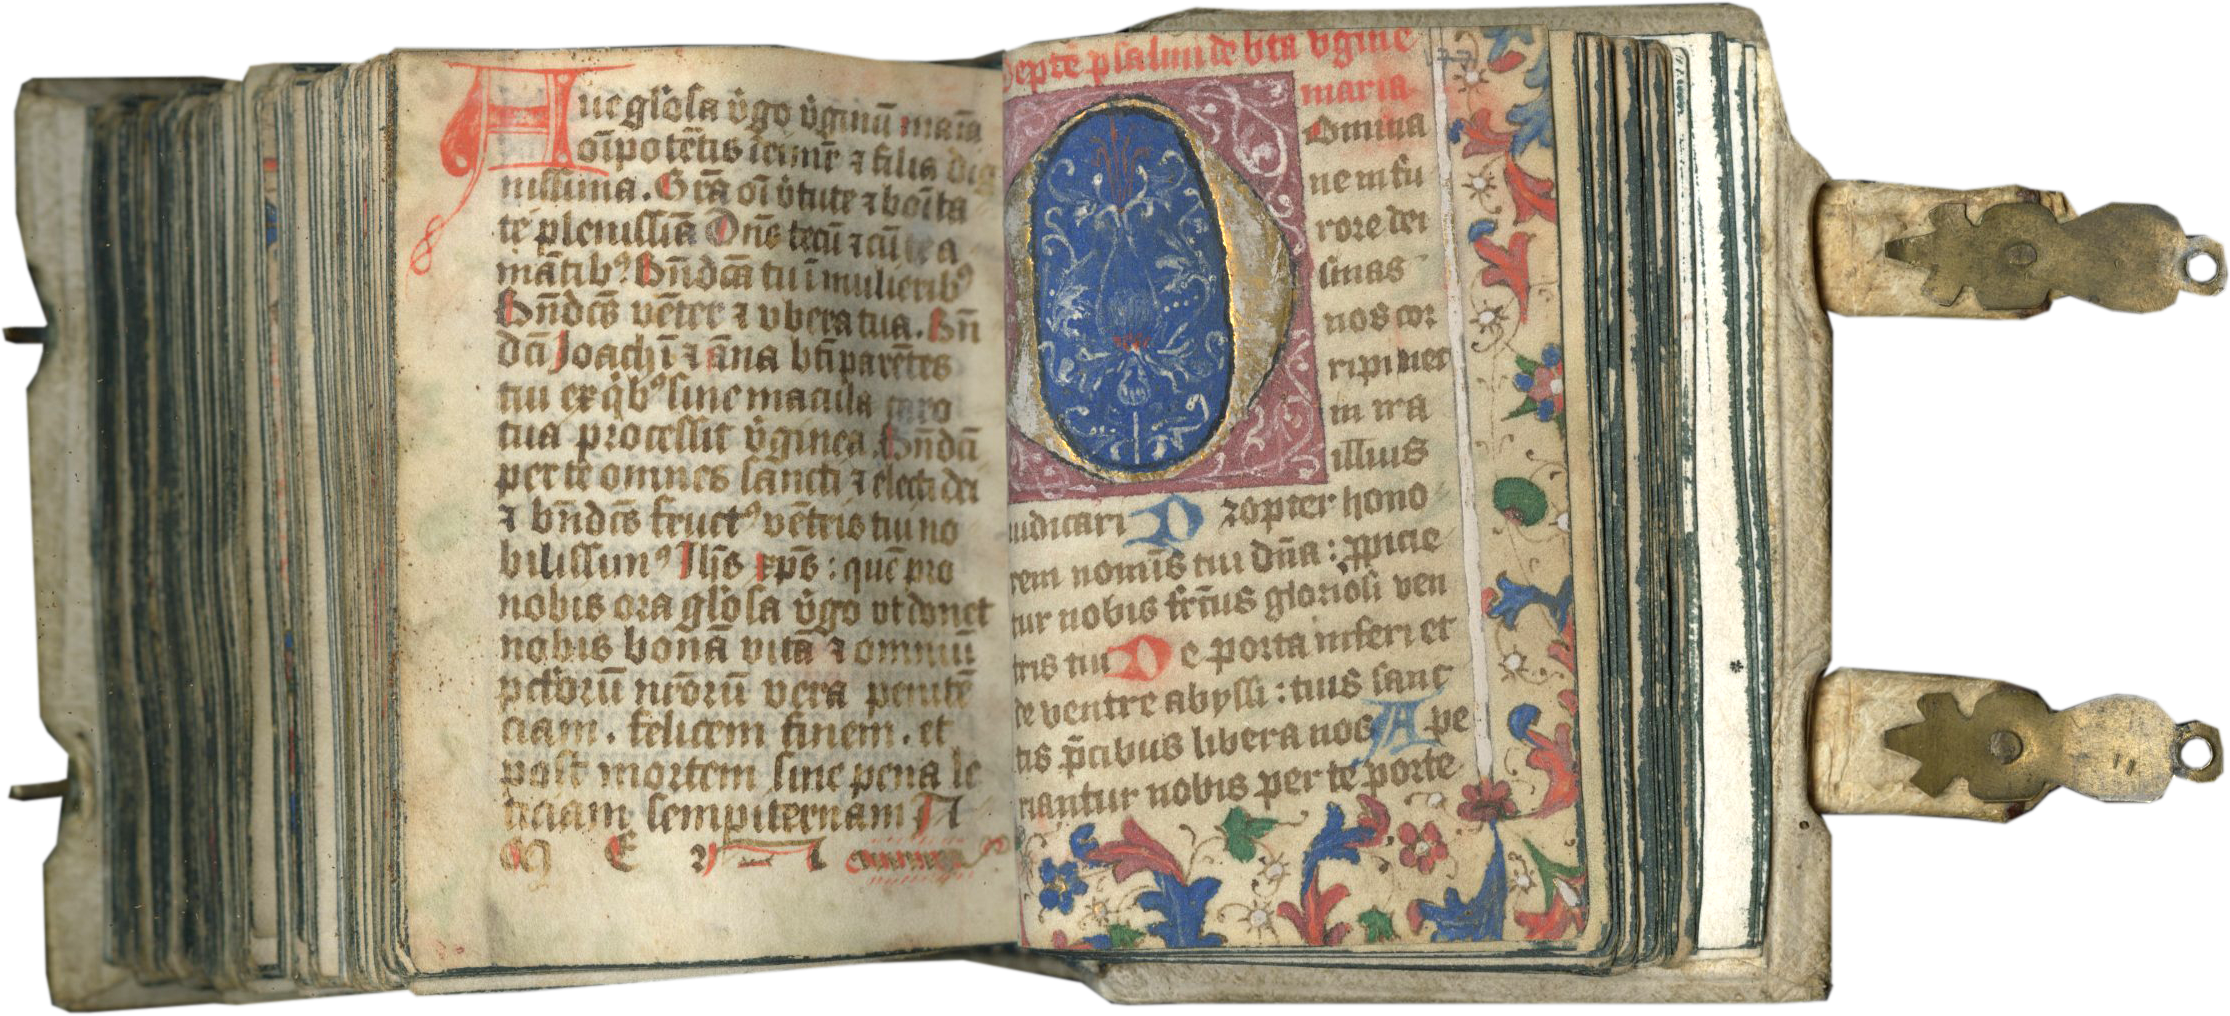 Aue gl̄osa v̄go v̄ginū maria
oīpotētis
nissima. Grā oī v̄tute ⁊ boīta
te plenissīā Dn̄s tecū ⁊ cū te a
mātibꝰ Bn̄dcā tu ī mulieribꝰ
Bn̄dcs vēter ⁊ vbera tua. Bn̄
dcī Joachī ⁊ āna btī parētes
tui ex qͥbꝰ sine macula caro
tua processit v̄ginea Bn̄dcī
per te omnes sancti ⁊ electi dei
⁊ bn̄dcs fructꝰ vētris tui no
bilissimꝰ Jh̄s xp̄s : quē pro
nobis ora gl̄osa v̄go vt donet
nobis bonā vitā ⁊ omniū
pctōrū nr̄orū vera penitē
ciam . felicem finem . et
post mortem sine pena le
ticiam sempiternam A
M E N
Septē psalmi de bta vgine
maria
Domina
ne in fu
rore dei
sinas
nos cor
ripi nec
in ira
illius
iudicari Propter hono
rem nomīs tui dn̄a : ꝓpicie
tur nobis frc̄tus gloriosi ven
tris tui De porta inferi et
de ventre abyssi : tuis sanc
tis p̄cibus libera nos Ape
riantur nobis per te porte